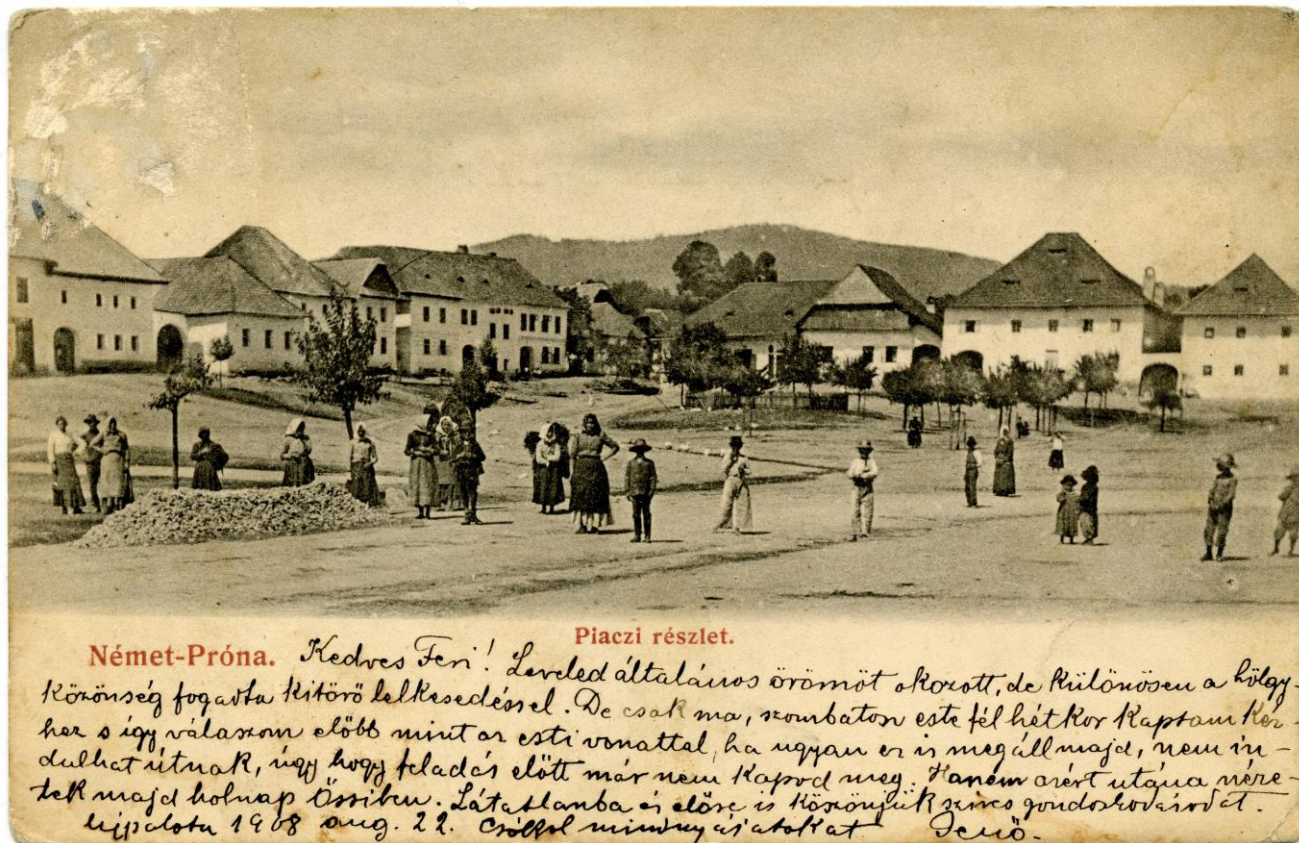 Német-Próna.
Piaczi részlet.
Kedves Feri! Leveled általános örömöt okozott, de különösen a hölgy-
közönség fogadta kitörő lelkesedéssel. De csak ma, szombaton este fél hétkor kaptam kéz-
hez s így válaszom előbb mint az esti vonattal, ha ugyan ez is megáll majd, nem in-
dulhat útnak, úgy hogy feladás előtt már nem kapod meg. Hanem azért utána néze-
tek majd holnap Össiben. Látatlanba is előre is köszönjük szives gondoskodásodat.
Ujpalota 1908 aug. 22. Csókol mindnyájatokat Jenő.